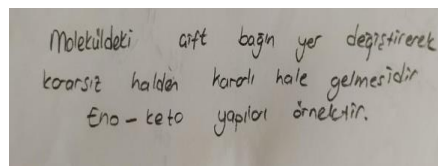 Moleküldeki çift bağın yer değiştirerek
kararsız halden kararlı hale gelmesidir
Eno-keto yapıları örnektir.